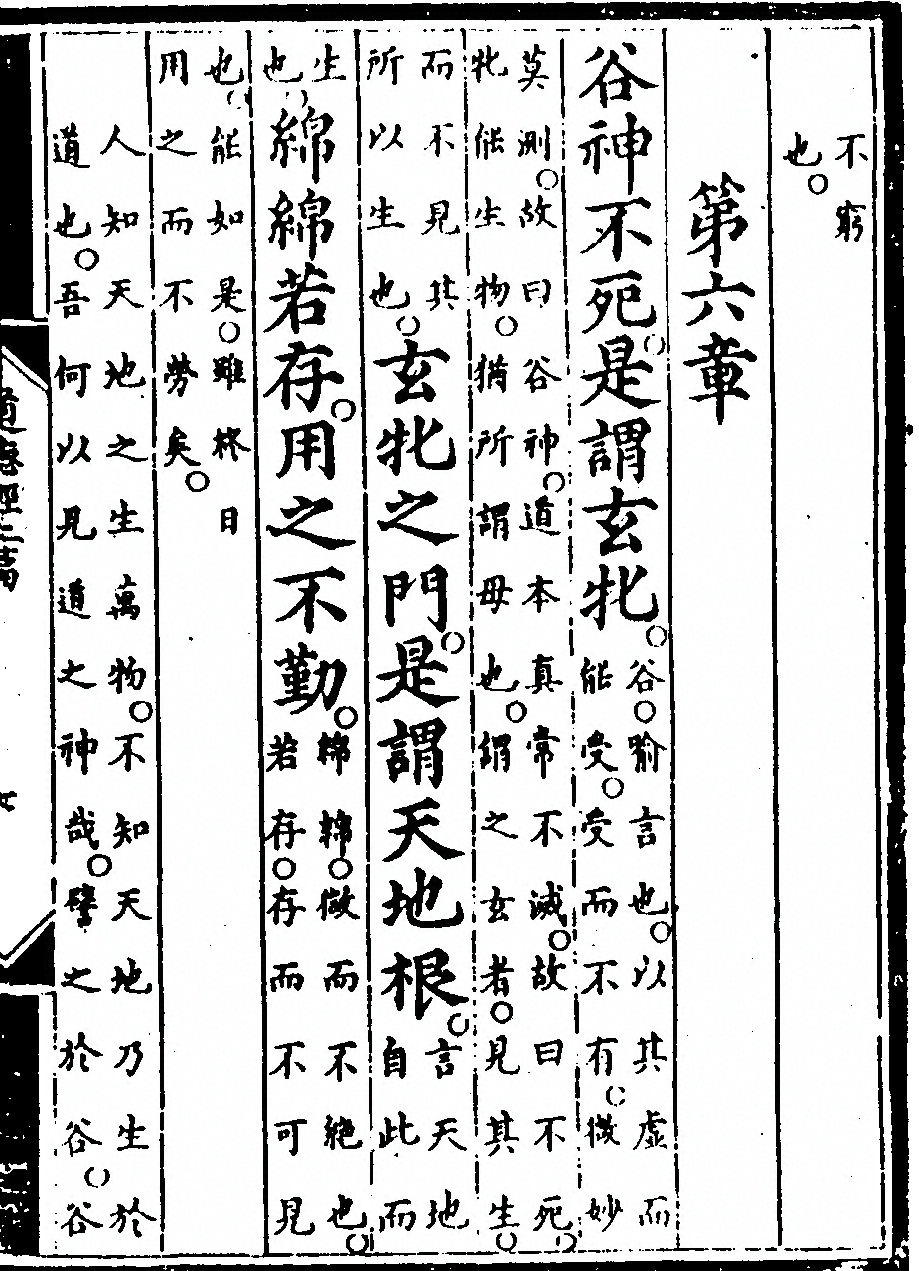 不窮
也。
第六章
谷神不死。是謂玄牝。
谷。喻言也。以其虛而
能受。受而不有。微妙
莫測。故曰谷神。道本真常不滅。故曰不死。
牝能生物。猶所謂母也。謂之玄者。見其生
而不見其
所以生也。
玄牝之門。是謂天地根。
言天地
自此而
生
也。
綿綿若存。用之不勤。
綿綿。微而不絕也。
若存。存而不可見
也。能如是。雖終日
用之而不勞矣。
人知天地之生萬物。不知天地乃生於
道也。吾何以見道之神哉。譬之於谷。谷